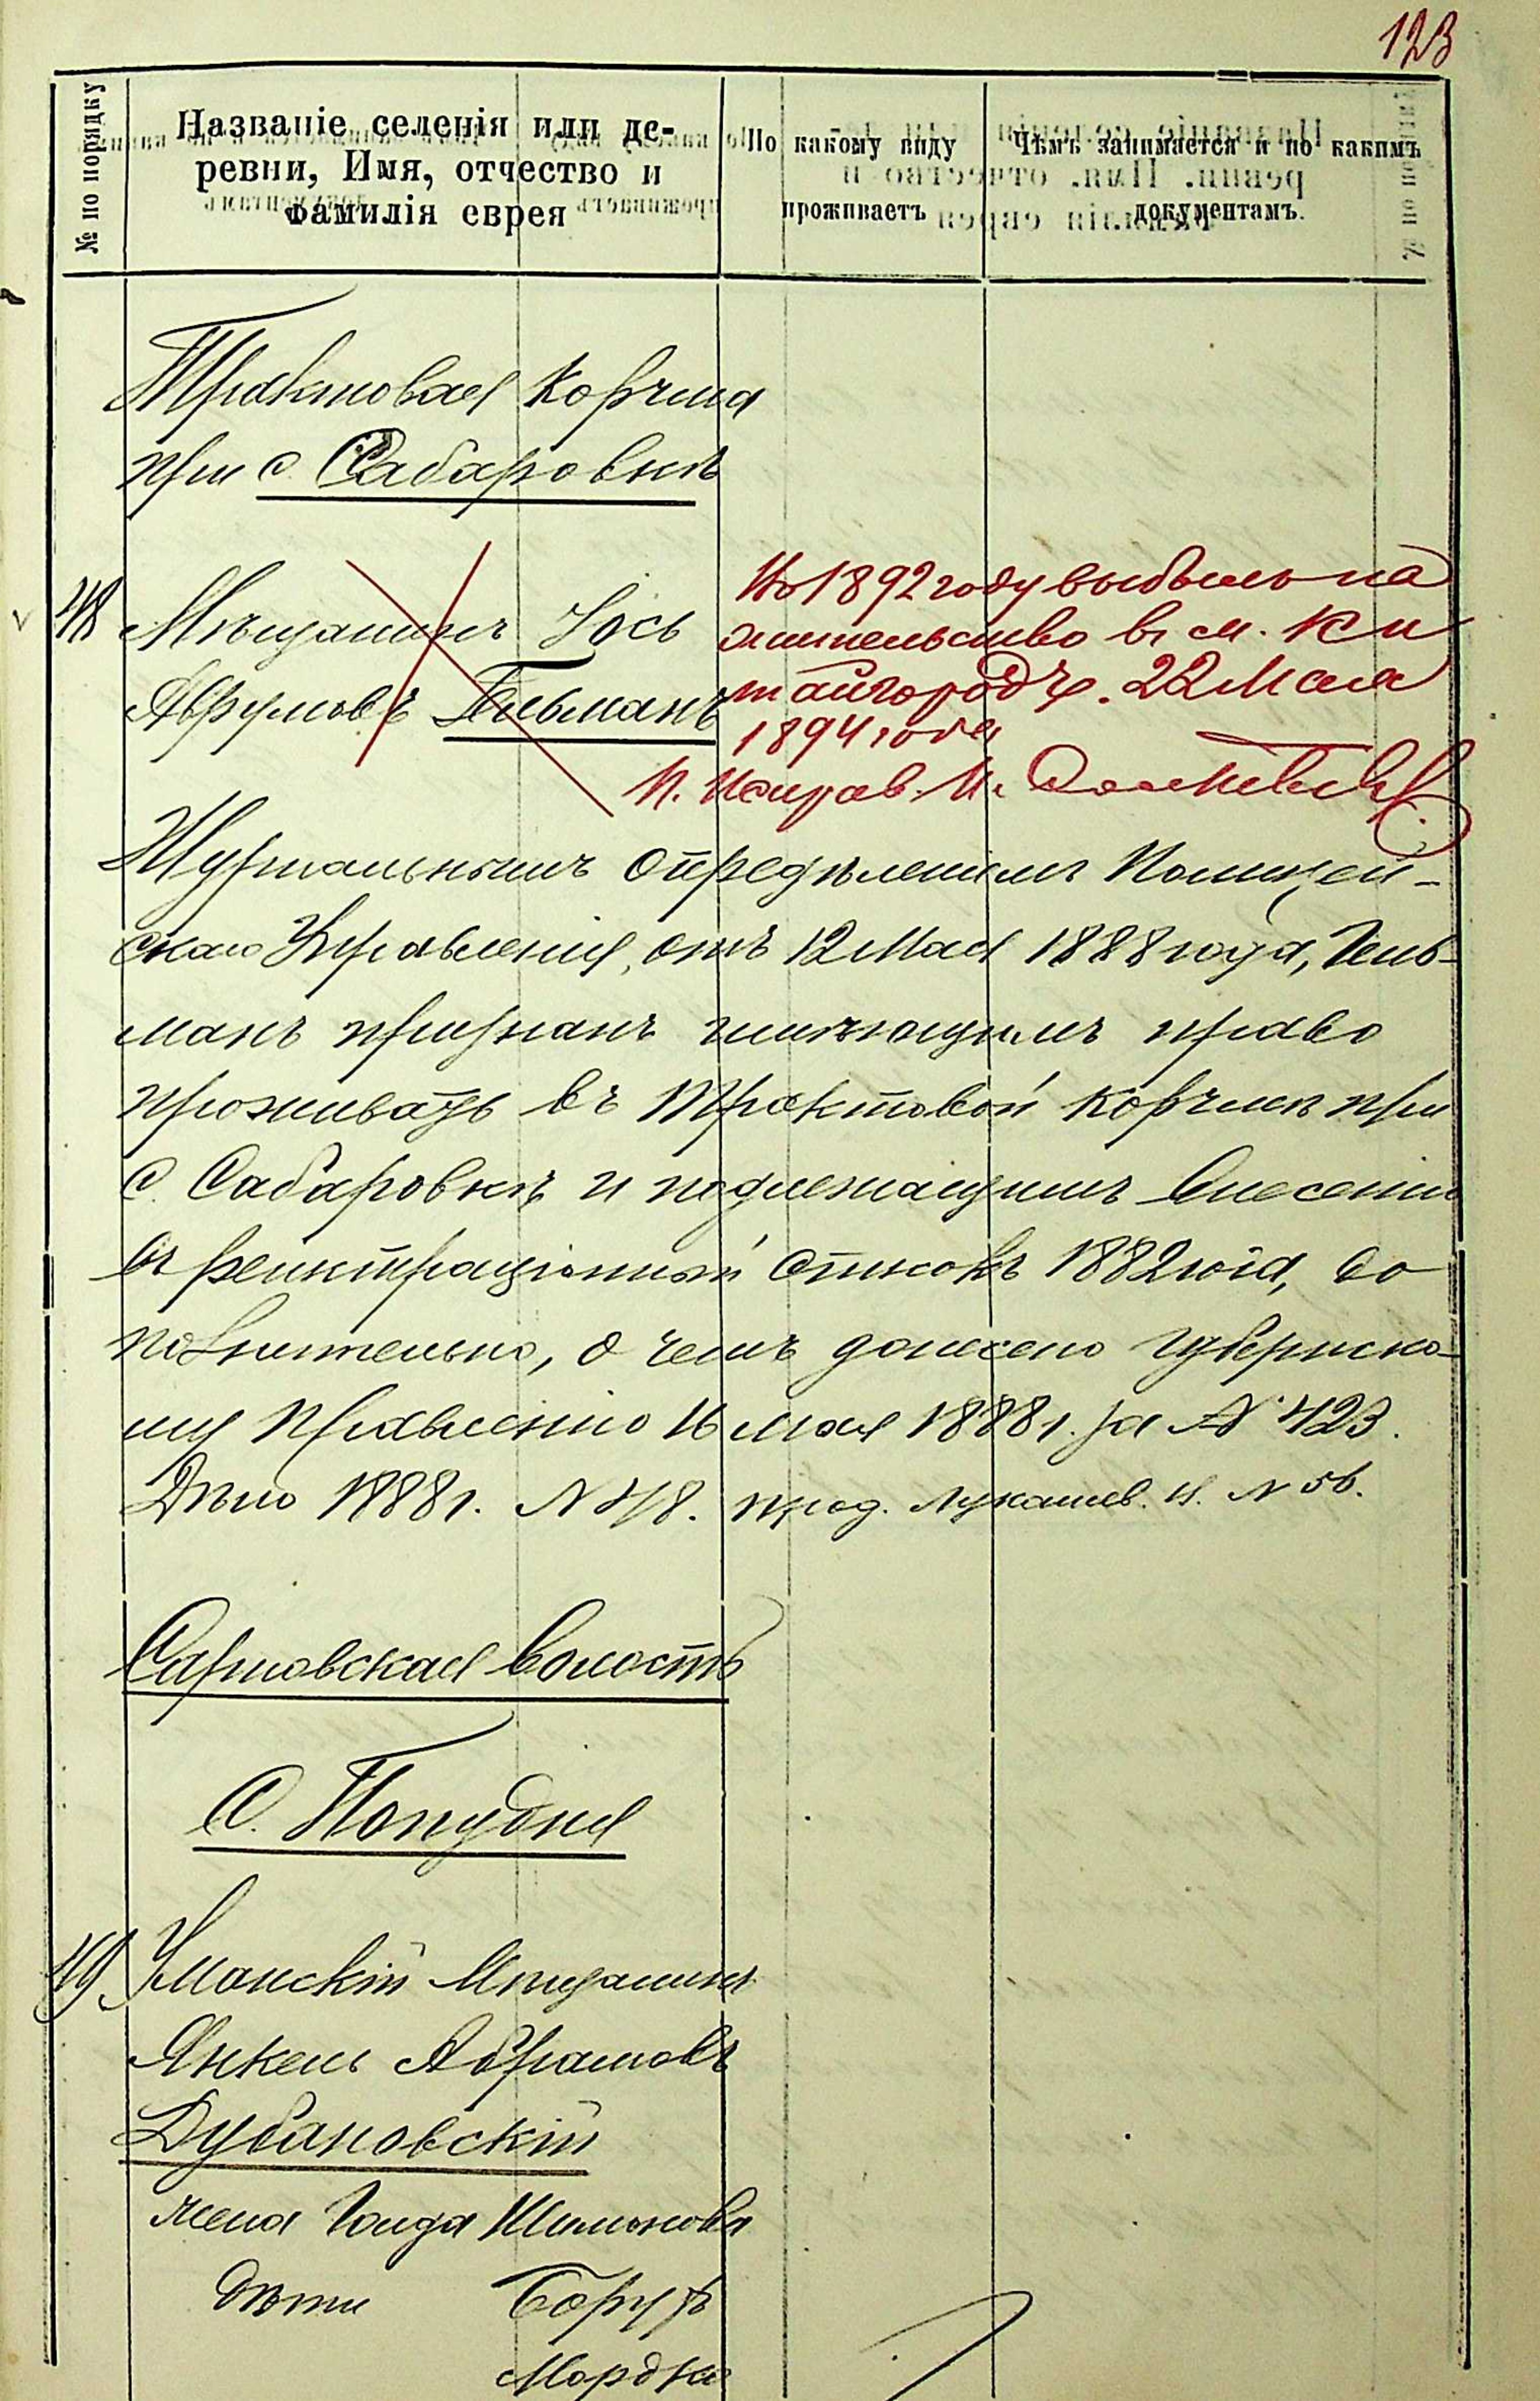 123
№ по порядку
Названіе селенія или де-
ревни, Имя, отчество и
Фамилія еврея
По какому виду
проживаетъ
Чѣмъ занимается и по какимъ
документамъ.
Трактовая Корчма
при с. Сабаровкѣ
48
Мѣщанинъ Іось
Аврумовъ Гельманъ
Въ 1892 году выбылъ на
жительство въ м. Ки
тайгородъ. 22 Мая
1894 года
П. Исправ. И.
Журнальнымъ опредѣленіемъ Полицей-
скаго Управленія, отъ 12 Мая 1888 года, Гель-
манъ признанъ имѣющимъ право
проживать въ Трактовой Корчмѣ при
с. Сабаровкѣ и подлежащимъ внесенію
въ регистраціонный списокъ 1882 года, до
полнительно, о чемъ донесено Губернско-
му Правленію 16 мая 1888 г. за № 423.
Дѣло 1888 г. № 48. прод. Лукашев. И. № 56.
Сарновская волость
С. Попудня
49
Уманскій Мѣщанинъ
Янкель Абрамовъ
Дубановскій
жена Голда Шимонова
дѣти Борухъ
Мордко